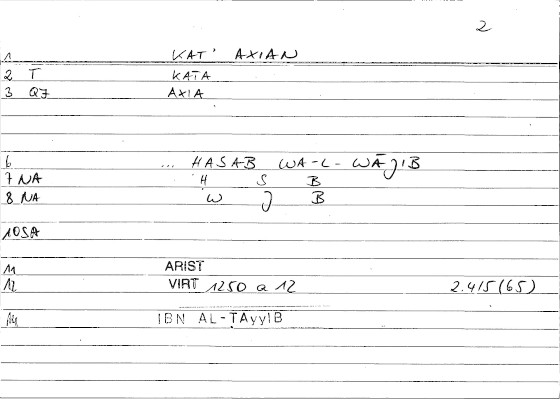 2
1 KAT' AXIAN
2 T KATA
3 QJ AXIA
6 ... HASAB WA-L-WĀJIB
7 NA H S B
8 NA W J B
10SA
11 ARIST
12 VIRT 1250 a 12 2.415(65)
14 IBN AL-TAyyIB